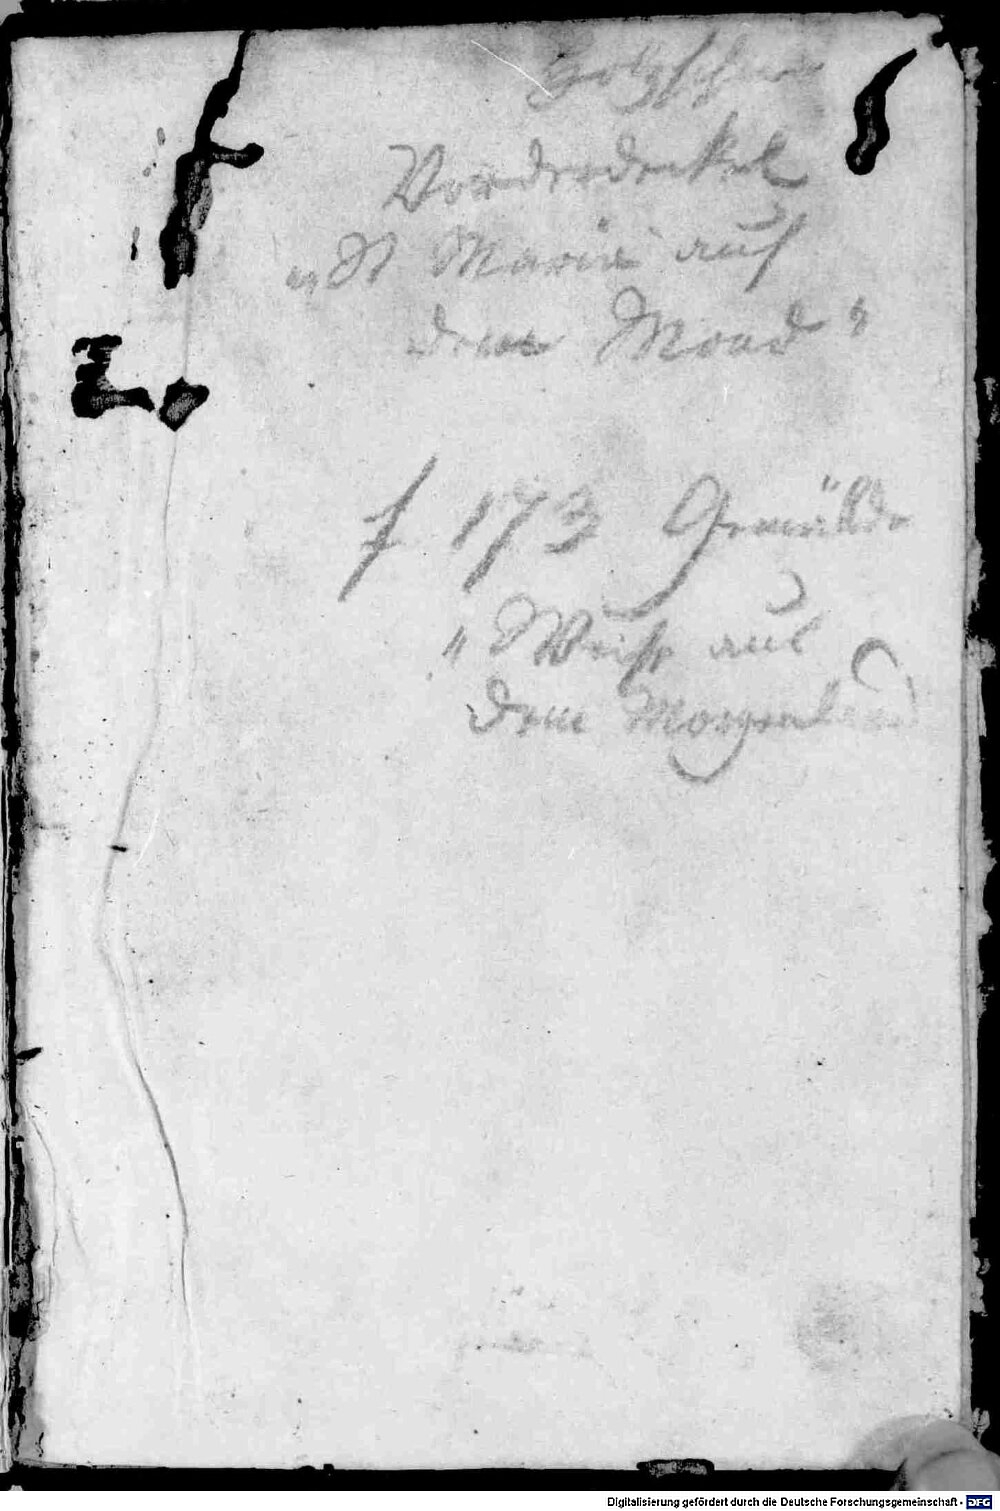 Holzschnitt
Vorderdeckel
„St Maria auf
dem Mond"
f 173 Gemälde
„Weise aus
dem Morgenland
Digitalisierung gefördert durch die Deutsche Forschungsgemeinschaft - DFG